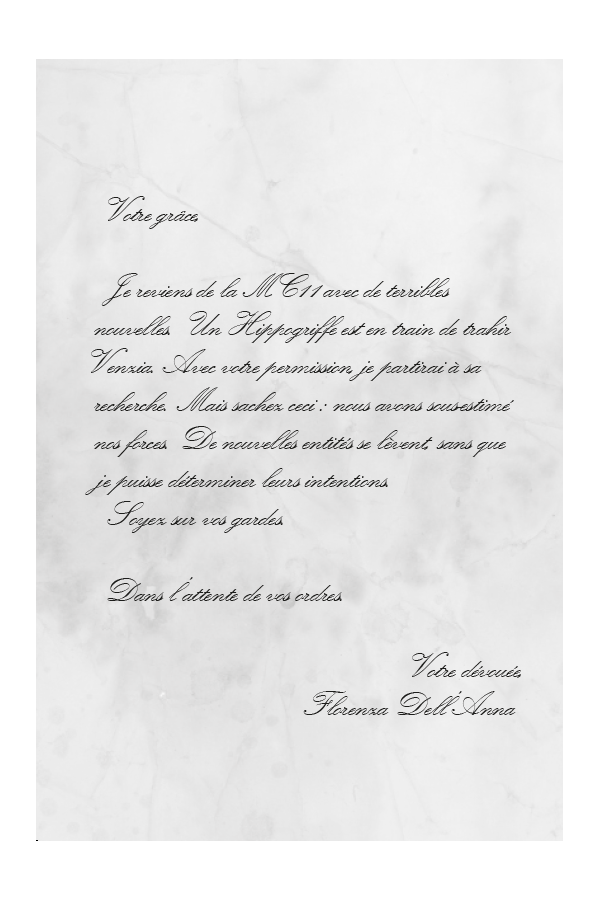 Votre grâce,
Je reviens de la MC11 avec de terribles
nouvelles. Un Hippogriffe est en train de trahir
Venzia. Avec votre permission, je partirai à sa
recherche. Mais sachez ceci : nous avons sous-estimé
nos forces. De nouvelles entités se lèvent, sans que
je puisse déterminer leurs intentions.
Soyez sur vos gardes.
Dans l'attente de vos ordres.
Votre dévouée,
Florenza Dell'Anna